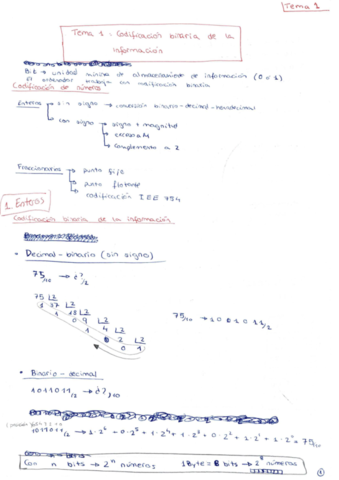 Tema 1
Tema 1: Codificación binaria de la
información
Bit → unidad mínima de almacenamiento de información (0 o 1)
El ordenador trabaja con codificación binaria
Codificación de números
Enteros
sin signo → conversión binario-decimal-hexadecimal
con signo → signo + magnitud
exceso a M
complemento a 2
Fraccionarios → punto fijo
punto flotante
codificación IEE 754
1 Enteros
Codificación binaria de la información
• Decimal-binario (sin signo)
75/10 → ¿?/2
75 |2
1 37 |2
1 18 |2
0 9 |2
1 4 |2
0 2 |2
0 1
75/10 → 1001011/2
• Binario-decimal
1011011/2 → ¿?/10
Con n bits → 2ⁿ números
1 Byte = 8 bits → 2⁸ números